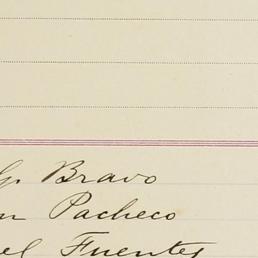 G. Bravo
n Pacheco
el Fuentes